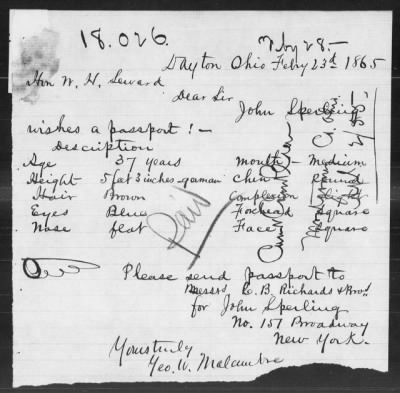 18.026.
Feby 28.-
Dayton Ohio Feby 23d 1865
Hon W. H. Seward
Dear Sir
John Sperling
wishes a passport! -
Description
Age 37 years mouth - Medium
Height 5 feet 3 inches - german Chin Round
Hair Brown Complexion Light
Eyes Blue Forhead Square
Nose flat Face Square
Paid
Please send passport to
Messrs C. B. Richards & Bros
for John Sperling
No. 157 Broadway
New York.
Yourstruly
Geo. W. Malambre